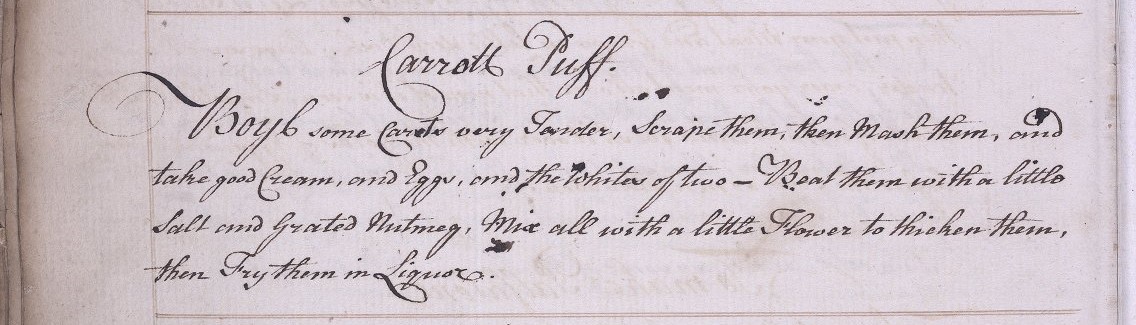 Carrott Puff.
Boyl some Carots very Tender, Scrape them, then Mash them, and
take good Cream, and Eggs, and the Whites of two – Beat them with a little
Salt and Grated Nutmeg, Mix all with a little Flower to thicken them,
then Fry them in Liquor.